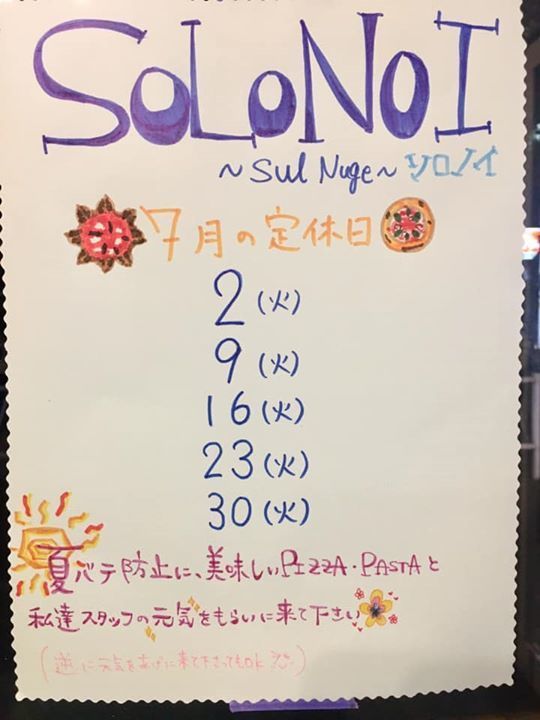 SOLONOI
~Sul Nuge~ ソロノイ
7月の定休日
2(火)
9(火)
16(火)
23(火)
30(火)
夏バテ防止に、美味しいPIZZA・PASTAと
私達スタッフの元気をもらいに来て下さい
(逆に元気をあげに来て下さってもOK)